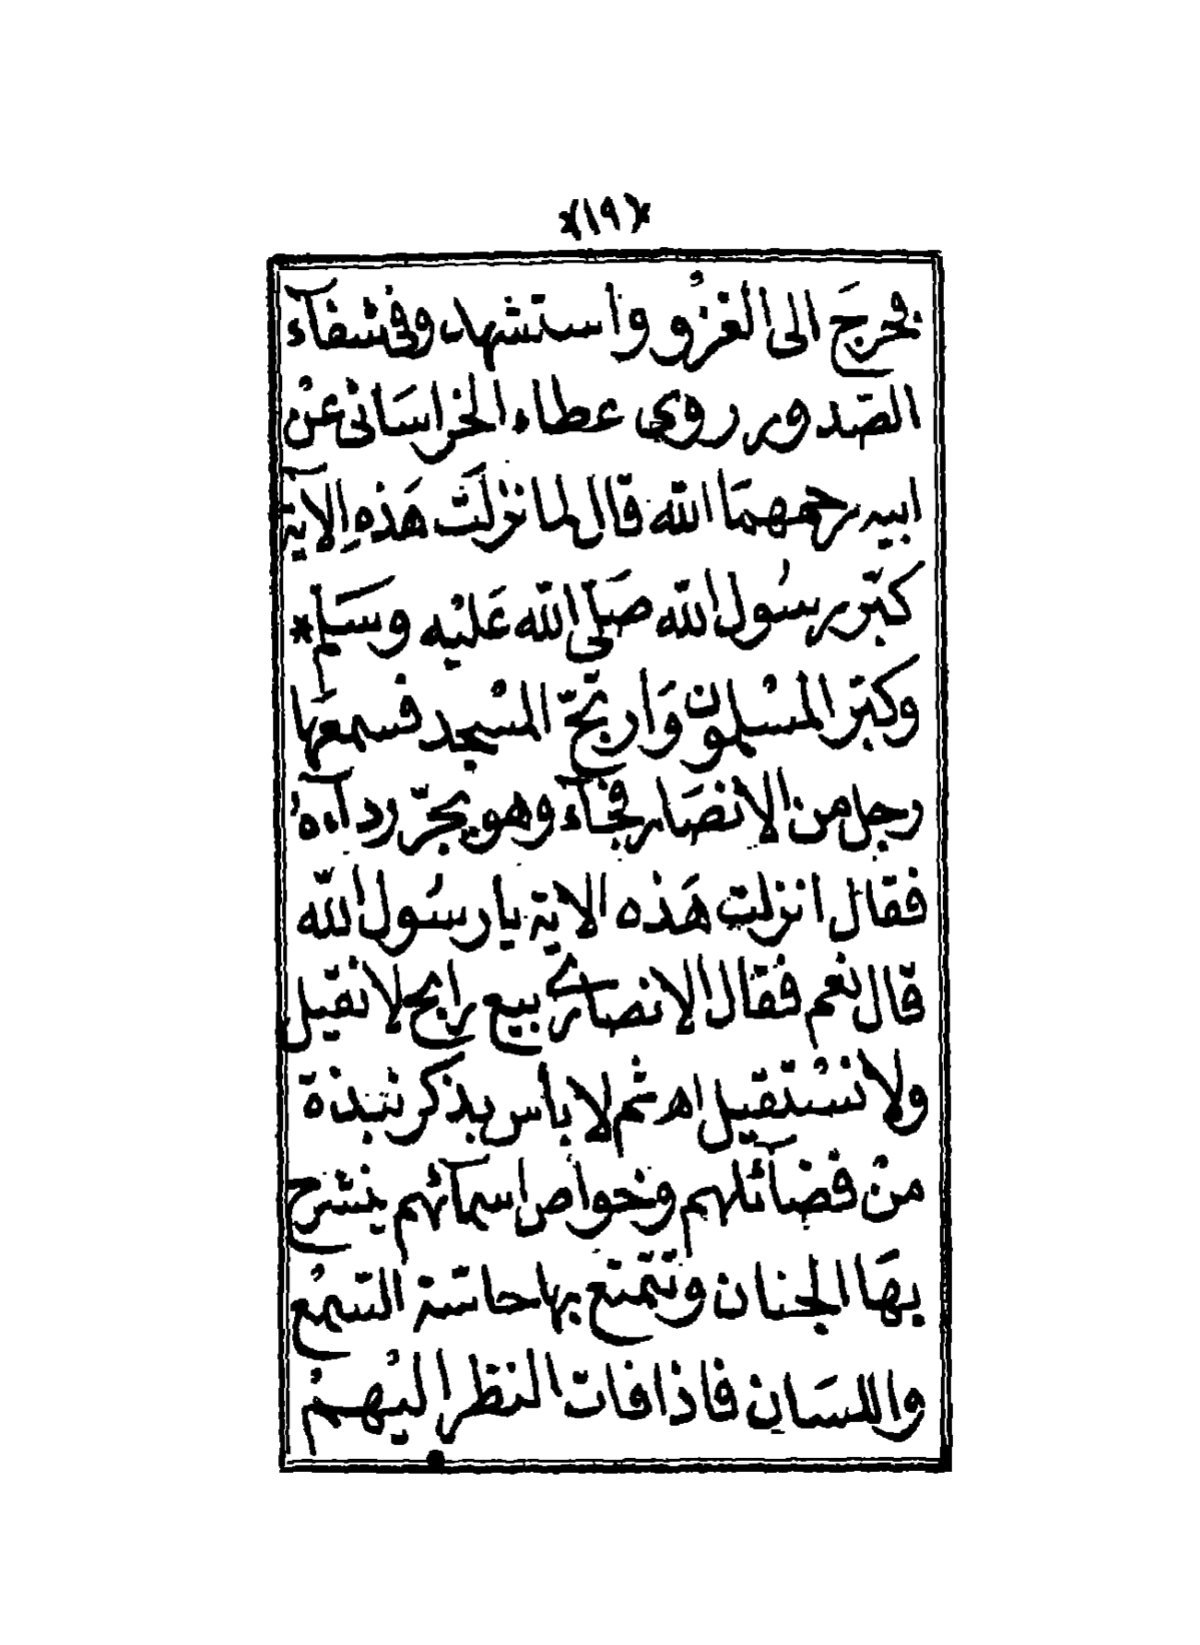 *(١٩)*
فخرجَ الى الغزْو واستشهد وفى شفآء
الصّدور روى عطاء الخراسانى عنْ
ابيه رحمهمَا الله قال لما نزلَت هَذهِ الاية
كبّر رسُول الله صَلّى الله عَليْه وسَلم *
وكبّر المسْلمون وَارتجّ المسْجد فسمعَها
رجل من الانصَار فجآء وهو يجرّ ردآءهُ
فقال انزلت هَذه الاية يا رسُول الله
قال نعم فقال الانصارى بيع رابح لا نقيل
ولا نسْتقيل اه ثم لا بأس بذكر نبذة
منْ فضآئلهم وخواص اسمآئهم ينشرح
بهَا الجنان وتتمتع بها حاسّة السّمْع
واللسَان فاذا فات النظر اليْهمْ